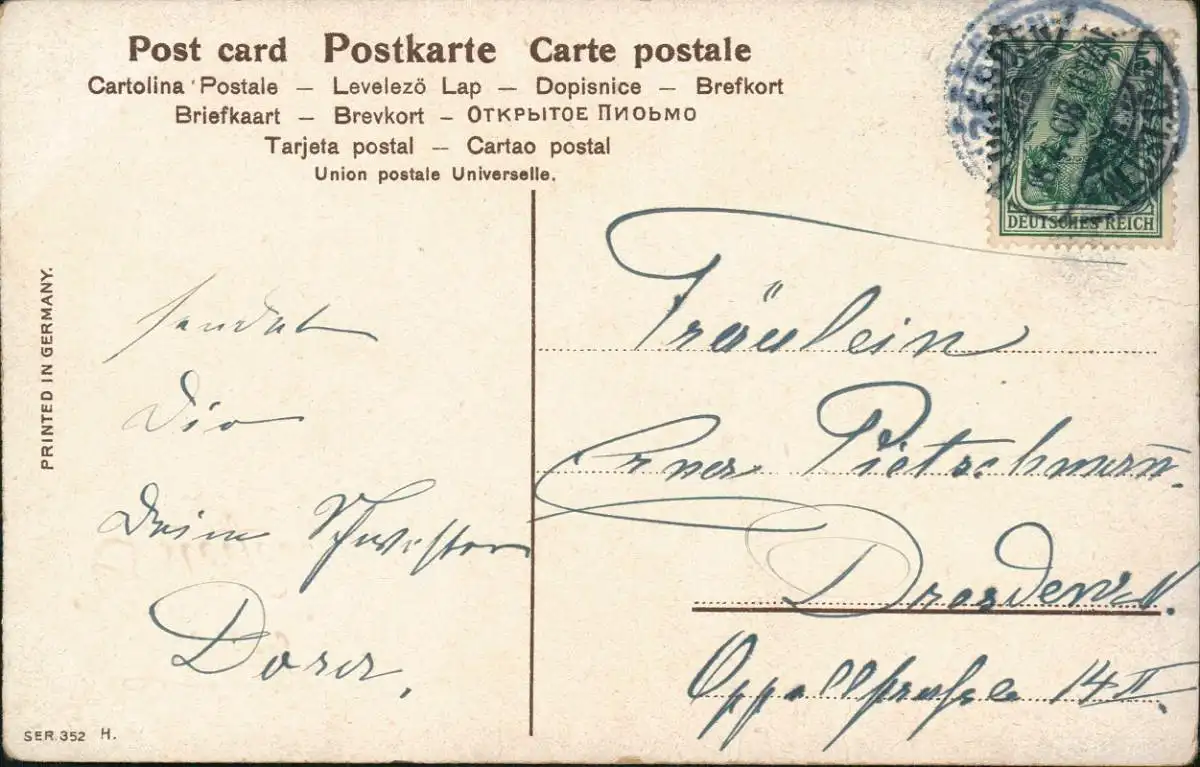 Post card Postkarte Carte postale
Cartolina Postale — Levelező Lap — Dopisnice — Brefkort
Briefkaart — Brevkort — Открытое Письмо
Tarjeta postal — Cartao postal
Union postale Universelle.
DEUTSCHES REICH
PRINTED IN GERMANY.
sendet
Dir
Deine Schwester
Dora,
Fräulein
Erna Pietschmann.
Dresden N.
Oppellstraße 14 II.
SER. 352 H.